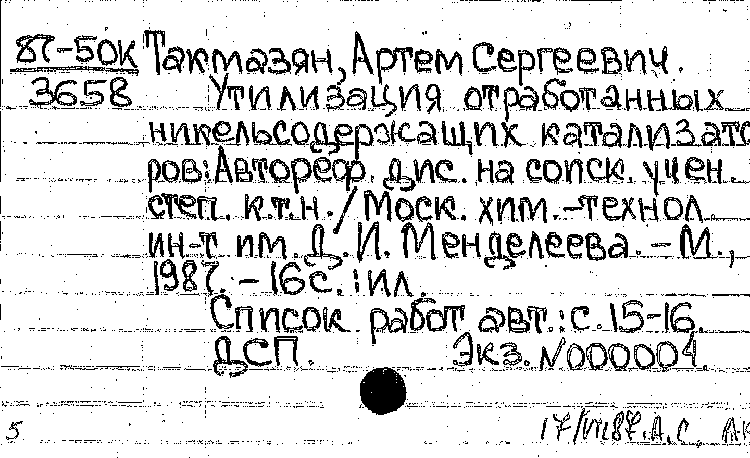 87-50К Такмазян, Артем Сергеевич.
3658 Утилизация отработанных
никельсодержащих катализато
ров: Автореф. дис. на соиск. учен.
степ. к.т.н. / Моск. хим.-технол.
ин-т им. Д. И. Менделеева. - М.,
1987. - 16 с. : ил.
Список работ авт.: с. 15-16.
ДСП. Экз. N000004.
5 17/VII87. А.С.